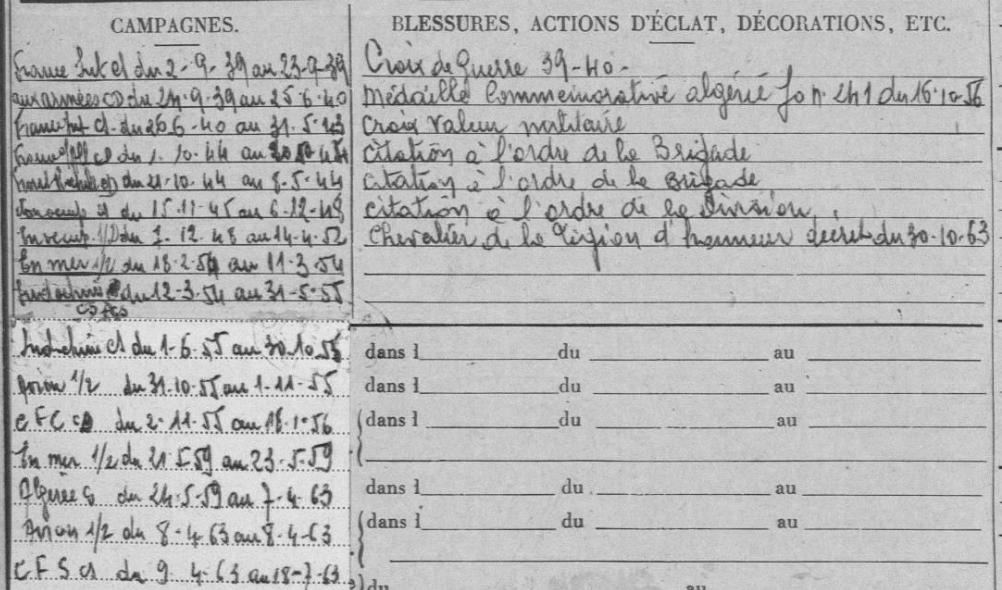 CAMPAGNES.
France Int CS du 2-9-39 au 23-9-39
aux armées CD du 24-9-39 au 25-6-40
France Int CS du 26 6-40 au 31-5-43
du 1-10-44 au
du 21-10-44 au 8-5-44
occup CS du 15-11-45 au 6-12-48
occup. 1/2 du 7-12-48 au 14-4-52
En mer 1/2 du 18-2-54 au 11-3-54
Indochine du 12-3-54 au 31-5-55
Indochine CS du 1-6-55 au 30-10-55
Avion 1/2 du 31-10-55 au 1-11-55
CFC CS du 2-11-55 au 18-1-56
En mer 1/2 du 21-5-59 au 23-5-59
Algérie CS du 24-5-59 au 7-4-63
Avion 1/2 du 8-4-63 au 8-4-63
CFS CS du 9 4-63 au 18-7-63
BLESSURES, ACTIONS D'ÉCLAT, DÉCORATIONS, ETC.
Croix de Guerre 39-40-
Médaille Commémorative algérie Jo n° 241 du 16-10-56
Croix Valeur militaire
Citation à l'ordre de la Brigade
Citation à l'ordre de la Brigade
Citation à l'ordre de la Division
Chevalier de la Légion d'honneur decret du 30-10-63
dans l du au
dans l du au
dans l du au
dans l du au
dans l du au
du au